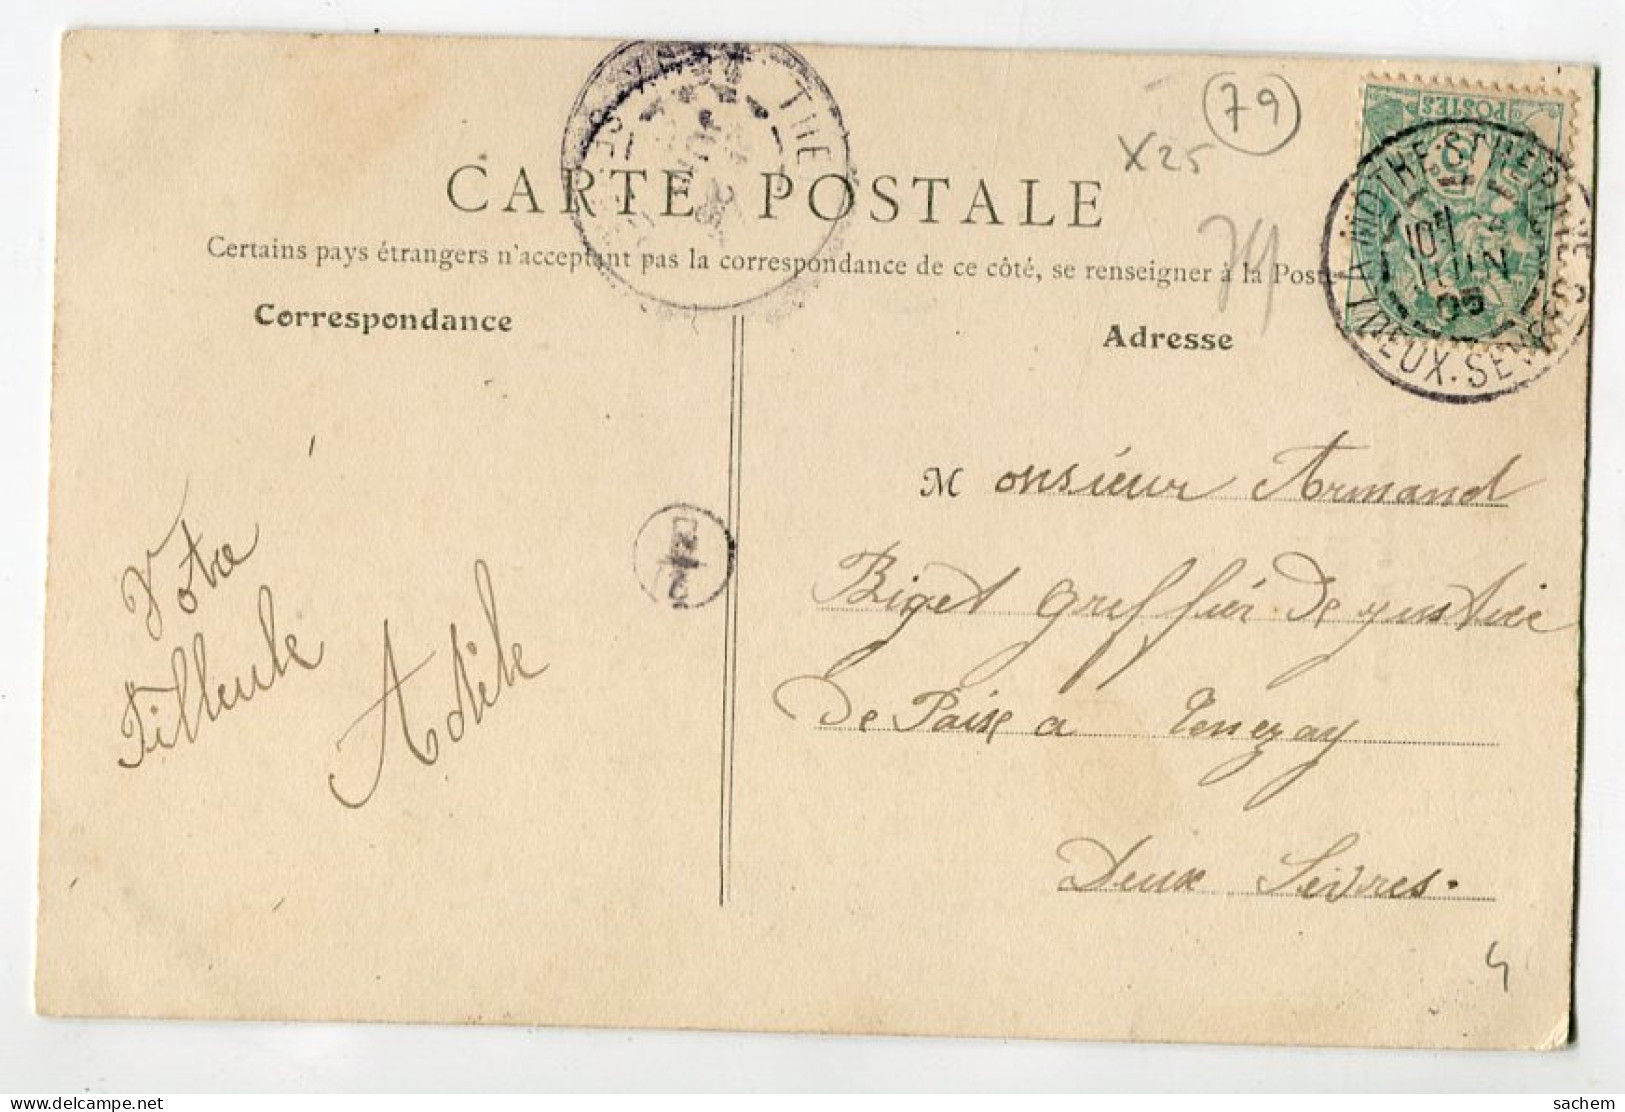 79
X25
79
POSTES
LAMOTHE-ST-HERAYE
10E
JUIN
05
DEUX-SEVRES
THE
CARTE POSTALE
Certains pays étrangers n'acceptent pas la correspondance de ce côté, se renseigner à la Poste
Correspondance
Adresse
Votre
Filleule
Adèle
Monsieur Armand
Biget greffier de justice
de Paix a Tenezay
Deux Sèvres.
4
sachem